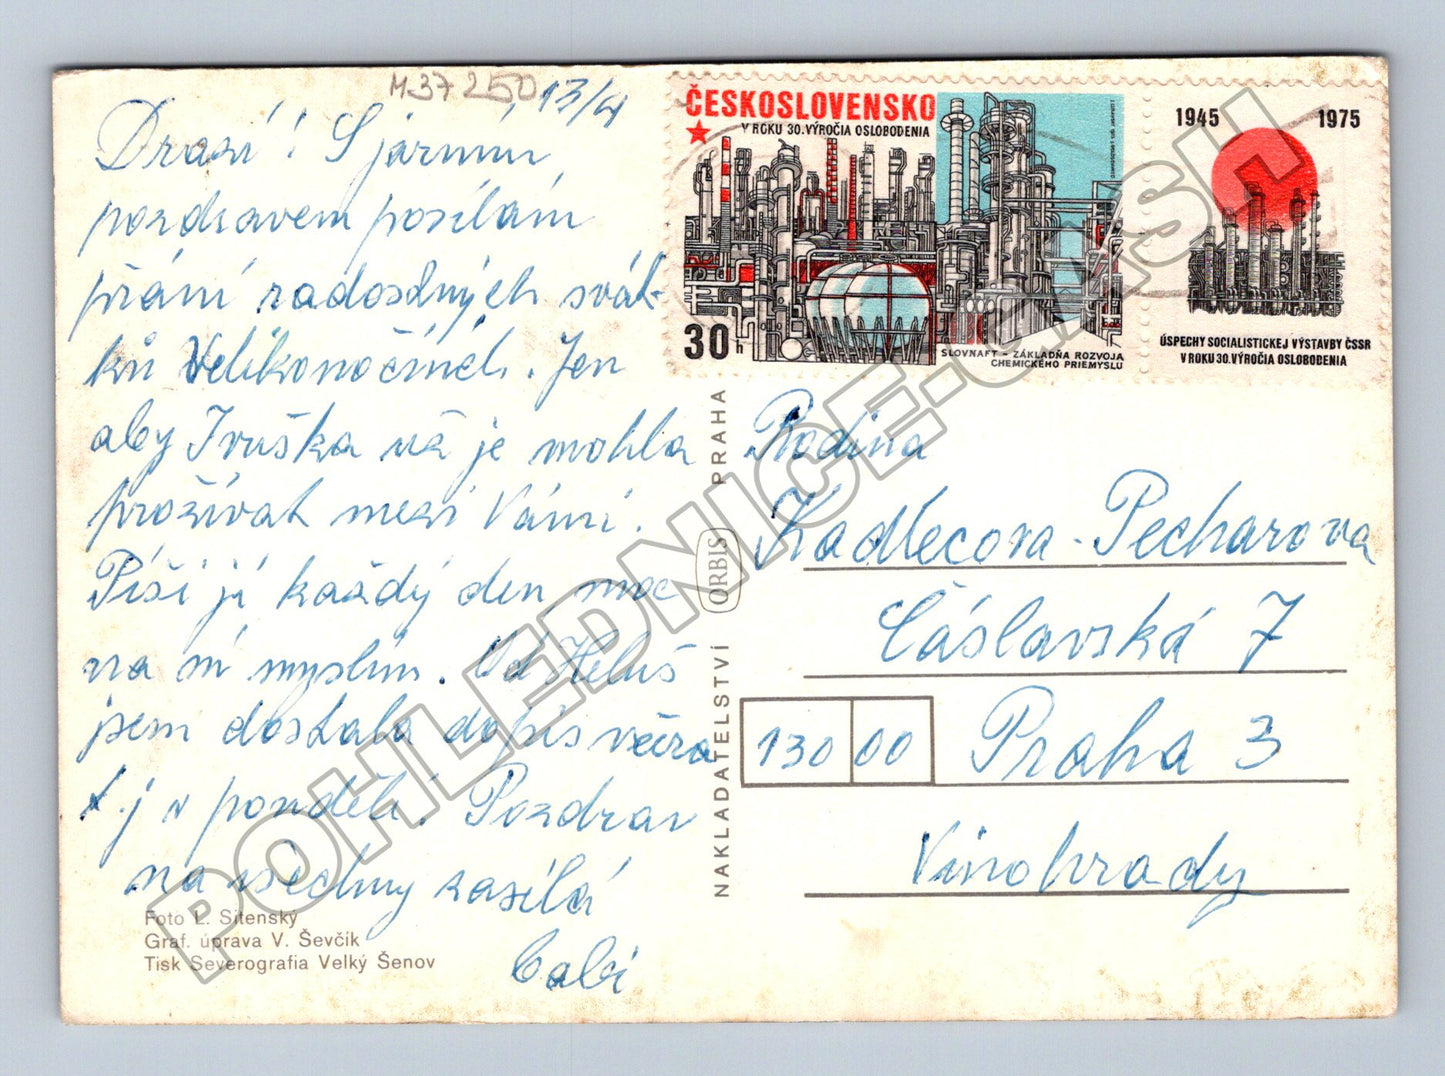 M37 250 13/4
Drazí! S jarním
pozdravem posílám
přání radostných svát-
ků Velikonočních. Jen
aby Ivuška už je mohla
prožívat mezi Vámi.
Píši jí každý den moc
na ní myslím. Od Heluš
jsem dostala dopis včera
t.j v pondělí. Pozdrav
na všechny zasílá
Foto L. Sitenský
Graf. úprava V. Ševčík
Tisk Severografia Velký Šenov
NAKLADATELSTVÍ ORBIS PRAHA
ČESKOSLOVENSKO
V ROKU 30. VÝROČIA OSLOBODENIA
30 h
SLOVNAFT - ZÁKLADŇA ROZVOJA
CHEMICKÉHO PRIEMYSLU
1945 1975
ÚSPECHY SOCIALISTICKEJ VÝSTAVBY ČSSR
V ROKU 30. VÝROČIA OSLOBODENIA
Rodina
Kadlecova - Pecharova
Čáslavská 7
130 00 Praha 3
Vinohrady
POHLEDNICE-CASH